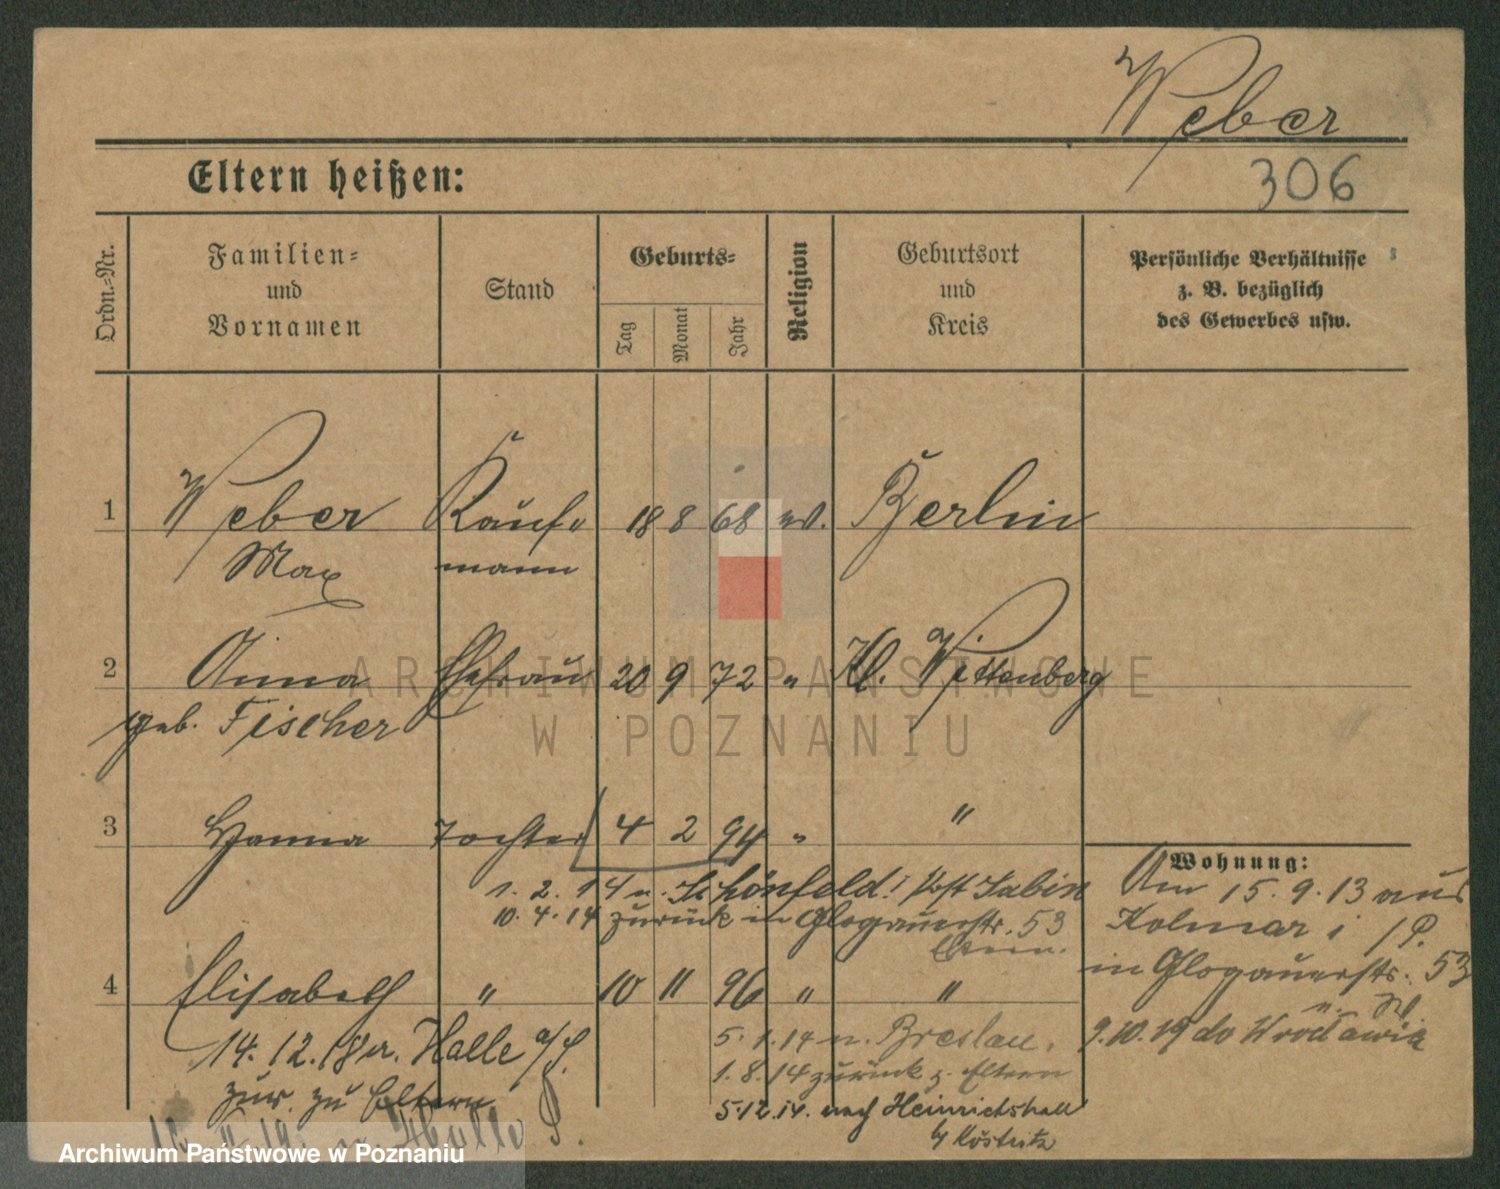 Weber
Eltern heißen:
306
Ordn.-Nr.
Familien-
und
Vornamen
Stand
Geburts-
Tag
Monat
Jahr
Religion
Geburtsort
und
Kreis
Persönliche Verhältnisse
z. B. bezüglich
des Gewerbes usw.
1 Weber Kauf- 18 8 68 ev. Berlin
Max mann
2 Anna Ehefrau 20 9 72 " Kl. Wittenberg
geb. Fischer
3 Hanna Tochter 4 2 94 " "
Wohnung:
1. 2. 14 n. Schönfeld Post
10. 4. 14 zurück in Glogauerstr. 53
Eltern.
Am 15. 9. 13 aus
Kolmar i/P.
in Glogauerstr. 53
4 Elisabeth " 10 11 96 " "
14. 12. 18 n. Halle a/S.
zur. zu Eltern
5. 1. 14 n. Breslau.
1. 8. 14 zurück z. Eltern
5.12.14. nach Heinrichshall
b/ Köstritz
9.10.19 do Wrocławia
n. Halle S.
ARCHIWUM PAŃSTWOWE
W POZNANIU
Archiwum Państwowe w Poznaniu